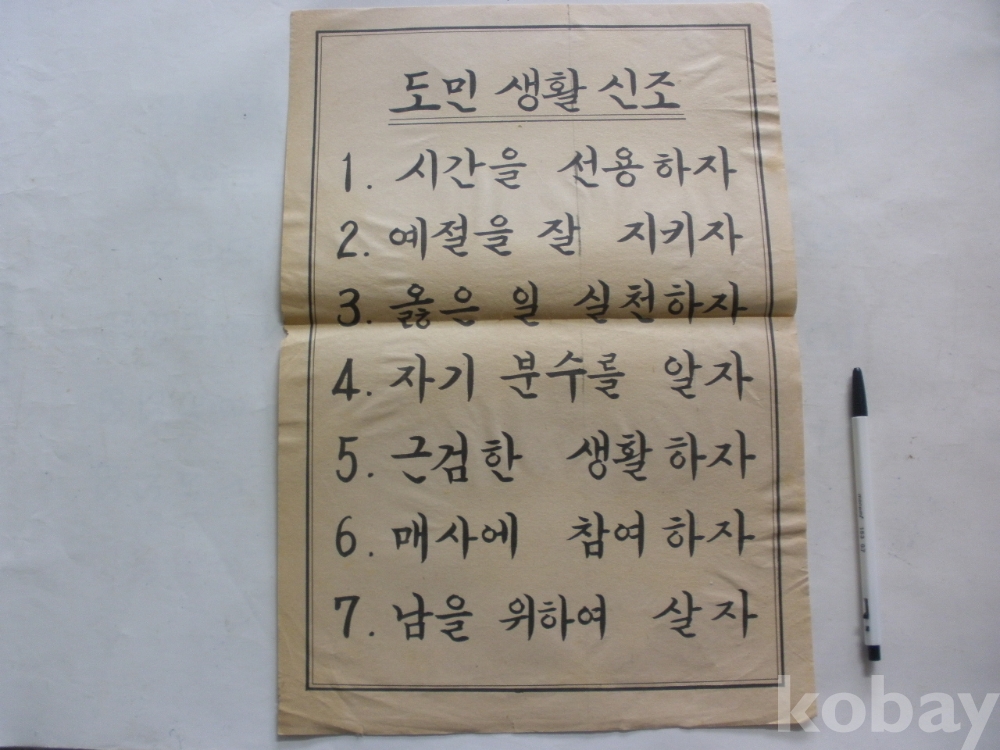 도민 생활 신조
1. 시간을 선용하자
2. 예절을 잘 지키자
3. 옳은 일 실천하자
4. 자기 분수를 알자
5. 근검한 생활하자
6. 매사에 참여하자
7. 남을 위하여 살자
kobay